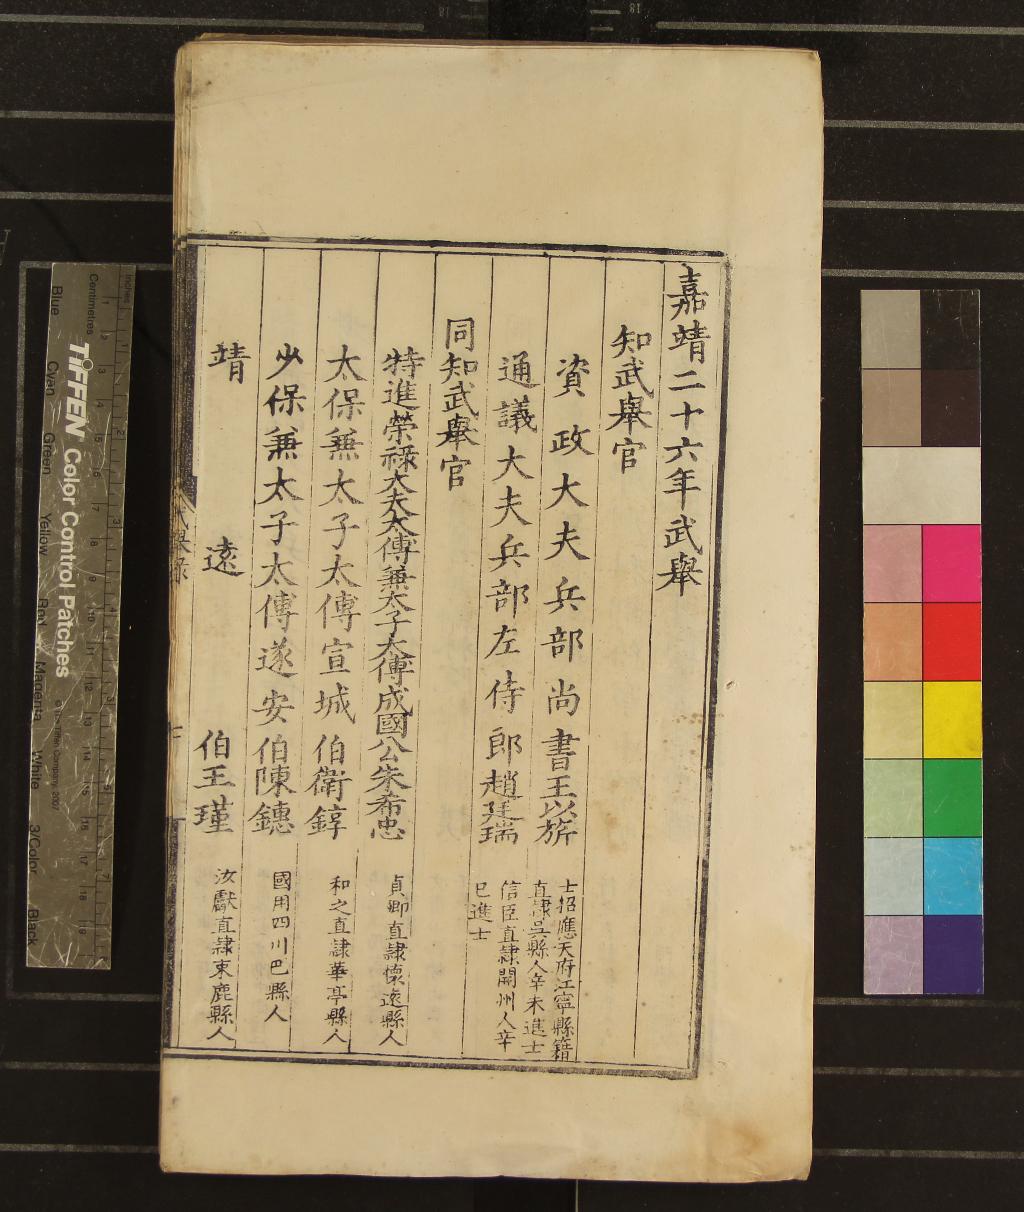 嘉靖二十六年武舉
知武舉官
資政大夫兵部尚書王以旂
士招應天府江寧縣籍
直隸吳縣人辛未進士
通議大夫兵部左侍郎趙廷瑞
信臣直隸開州人辛
巳進士
同知武舉官
特進榮祿大夫太傅兼太子太傅成國公朱希忠
貞卿直隸懷遠縣人
太保兼太子太傅宣城伯衛錞
和之直隸華亭縣人
少保兼太子太傅遂安伯陳鏸
國用四川巴縣人
靖遠伯王瑾
汝獻直隸束鹿縣人
TIFFEN Color Control Patches
© The Tiffen Company, 2007
Inches
Centimetres
Blue Cyan Green Yellow Red Magenta White 3/Color Black